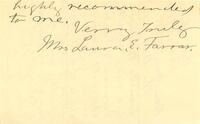 highly recommended
to me. Verry Truly
Mrs Laura, E. Farrar.